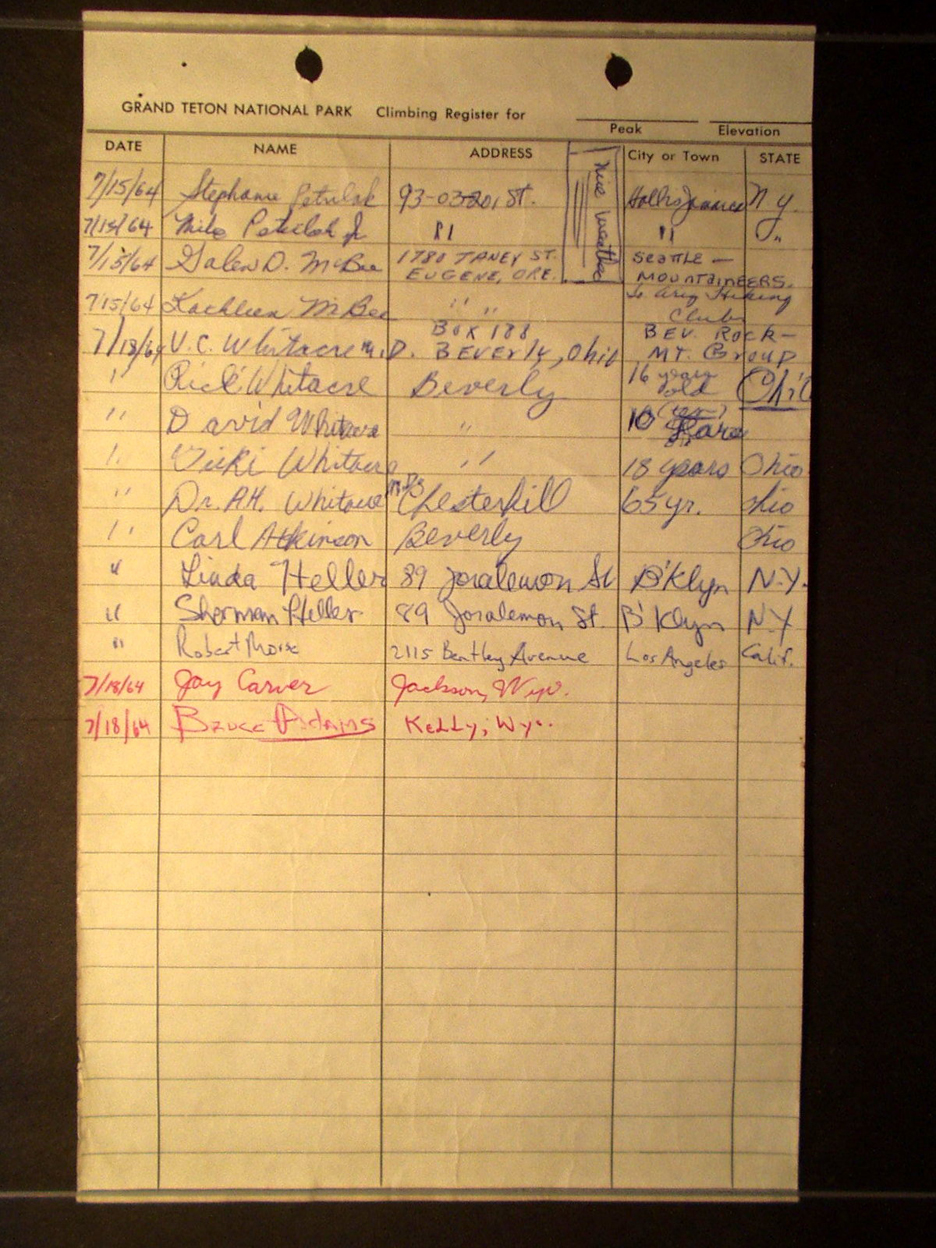 GRAND TETON NATIONAL PARK Climbing Register for
Peak Elevation
DATE NAME ADDRESS City or Town STATE
nice weather
7/15/64 Stephanie 93-03-201 St. Hollis Jamaica N.Y.
7/15/64 Jr " " "
7/15/64 Galen D. McBee 1780 TANEY ST. SEATTLE -
EUGENE, ORE. MOUNTAINEERS.
7/15/64 Kathleen McBee " " Hiking
Club
BOX 188 BEV. ROCK-
7/18/64 V.C. Whitacre M.D. BEVERLY, Ohio MT. GROUP
" Rick Whitacre Beverly 16 years old Ohio
" David Whitacre " 10
" Vicki Whitacre " 18 years Ohio
" Dr. A.H. Whitacre Chesterhill 65 yr. Ohio
" Carl Atkinson Beverly Ohio
" Linda Heller 89 Joralemon St B'klyn N.Y.
" Sherman Heller 89 Joralemon St. B'klyn N.Y
" Robert Morse 2115 Bentley Avenue Los Angeles Calif.
7/18/64 Jay Carver Jackson, Wyo.
7/18/64 Bruce Adams Kelly, Wy..